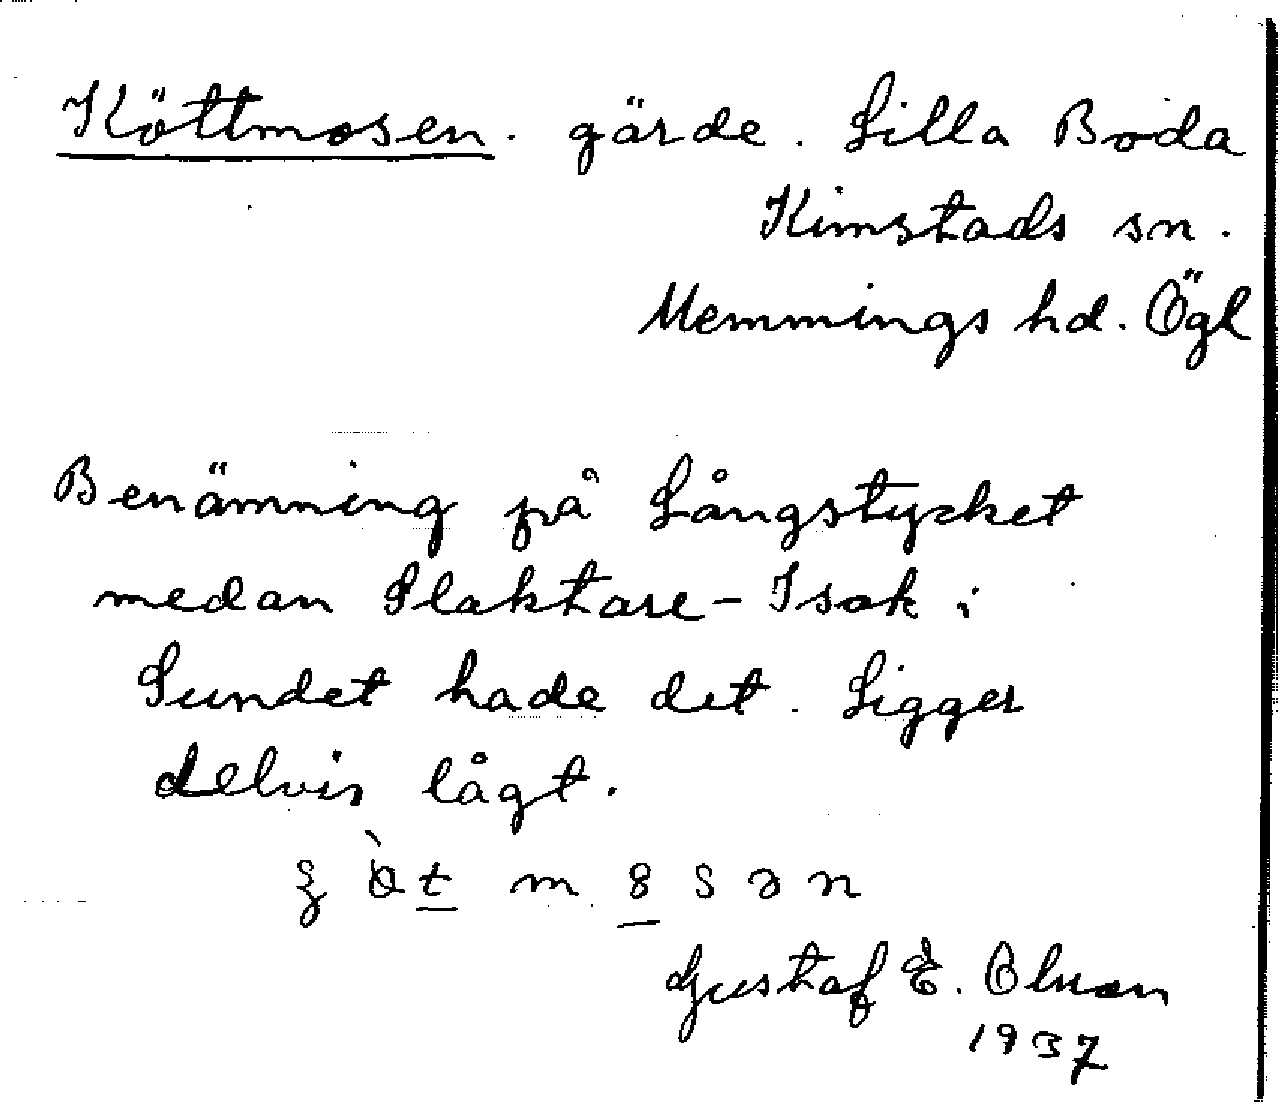 Köttmosen. gärde. Lilla Boda
Kimstads sn.
Memmings hd. Ögl
Benämning på Långstycket
medan Slaktare-Isak i
Sundet hade det. Ligger
delvis lågt.
Gustaf E. Olsson
1937